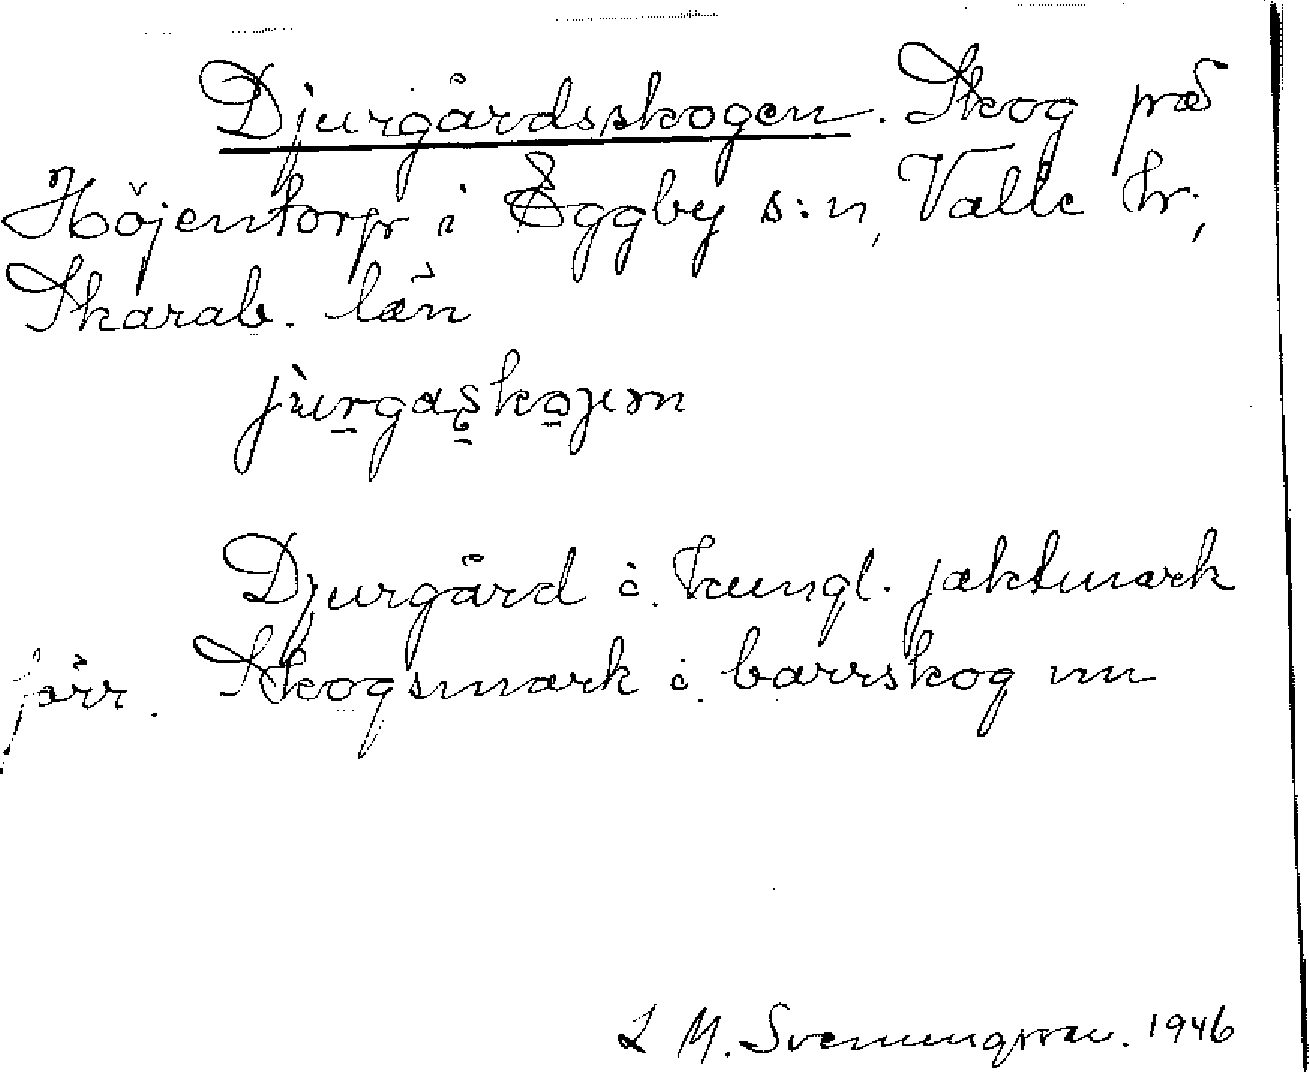 Djurgårdsskogen. Skog på
Höjentorp i Eggby s:n, Valle hr,
Skarab. län
Djurgård i. kungl. jaktmark
förr. Skogsmark i. barrskog nu
L M. Svenungsson. 1946